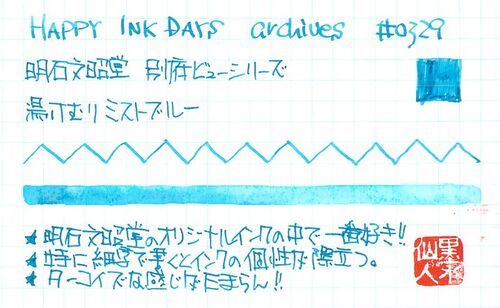 HAPPY INK DAYS archives #0329
明石文昭堂 別府ビューシリーズ
湯けむりミストブルー
★明石文昭堂のオリジナルインクの中で一番好き!!
★特に細字で書くとインクの個性が際立つ。
★ターコイズな感じがたまらん!!
仙人